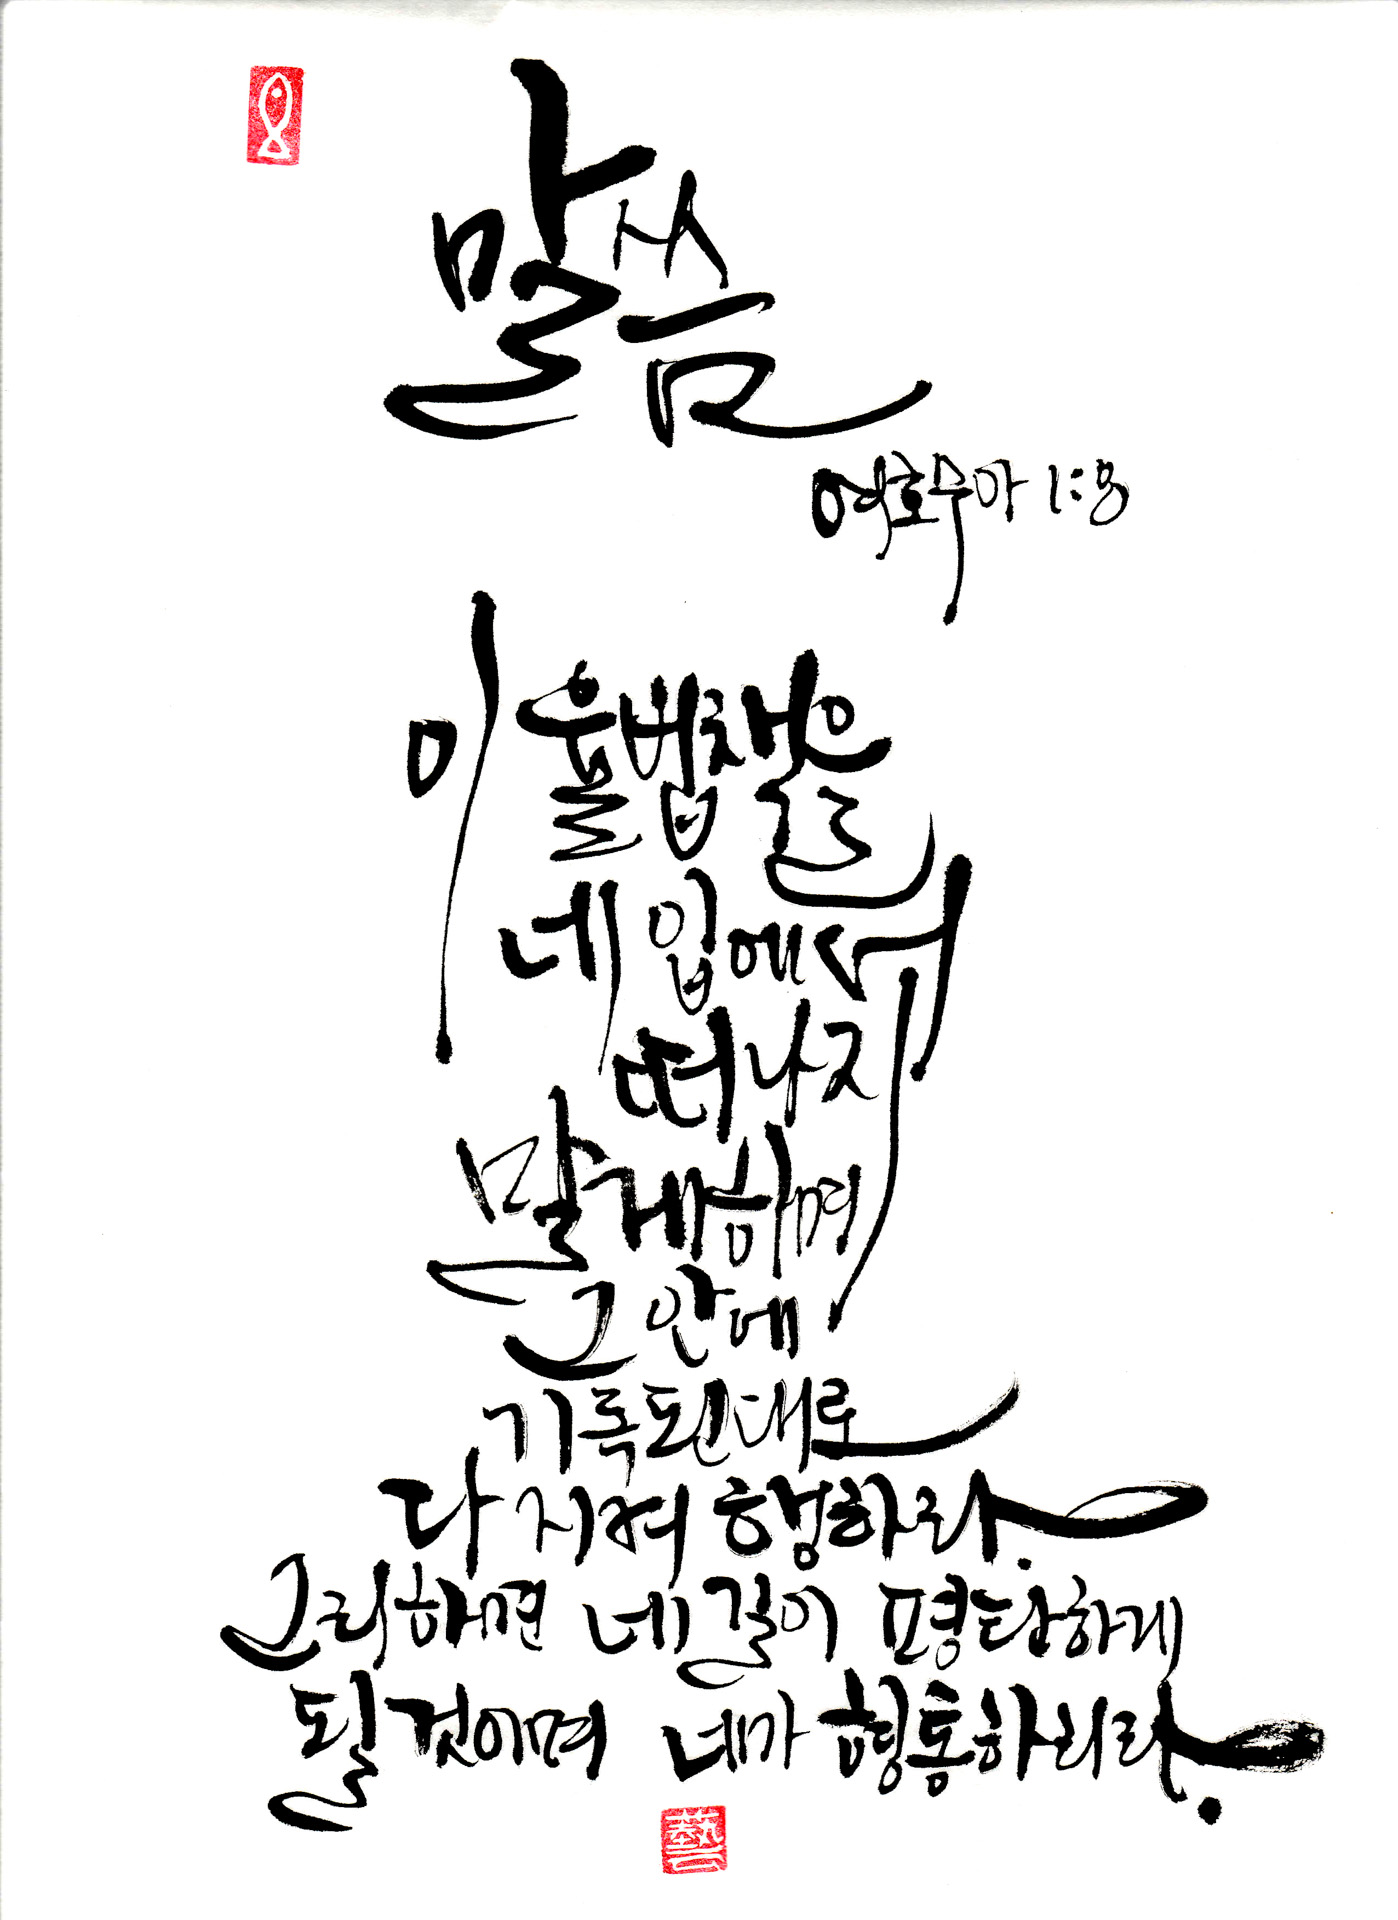 말씀
여호수아 1:8
이 율법책을
네 입에서
떠나지
말게하며
그 안에
기록된대로
다 지켜 행하라.
그리하면 네 길이 평탄하게
될 것이며 네가 형통하리라.
藝